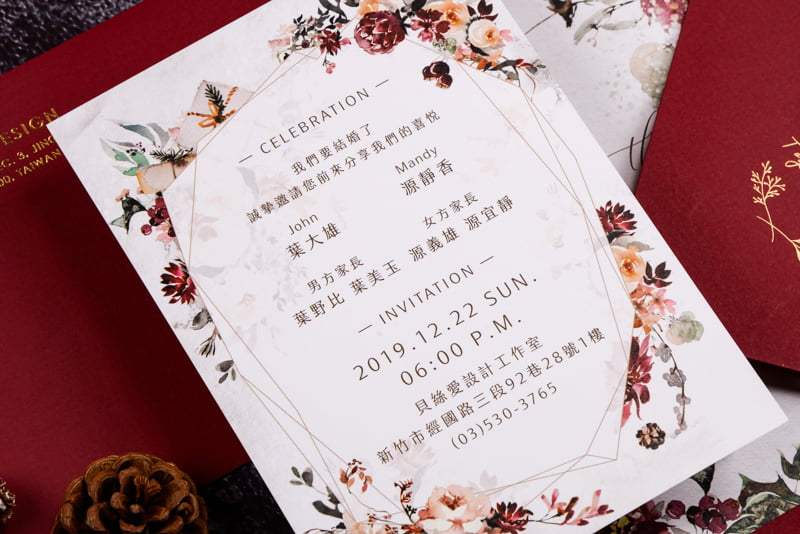 — CELEBRATION —
我們要結婚了
誠摯邀請您前來分享我們的喜悅
John
葉大雄
Mandy
源靜香
男方家長
葉野比 葉美玉
女方家長
源義雄 源宜靜
— INVITATION —
2019.12.22 SUN.
06:00 P.M.
貝絲愛設計工作室
新竹市經國路三段92巷28號1樓
(03)530-3765
ESIGN
C. 3, JING
00, TAIWAN